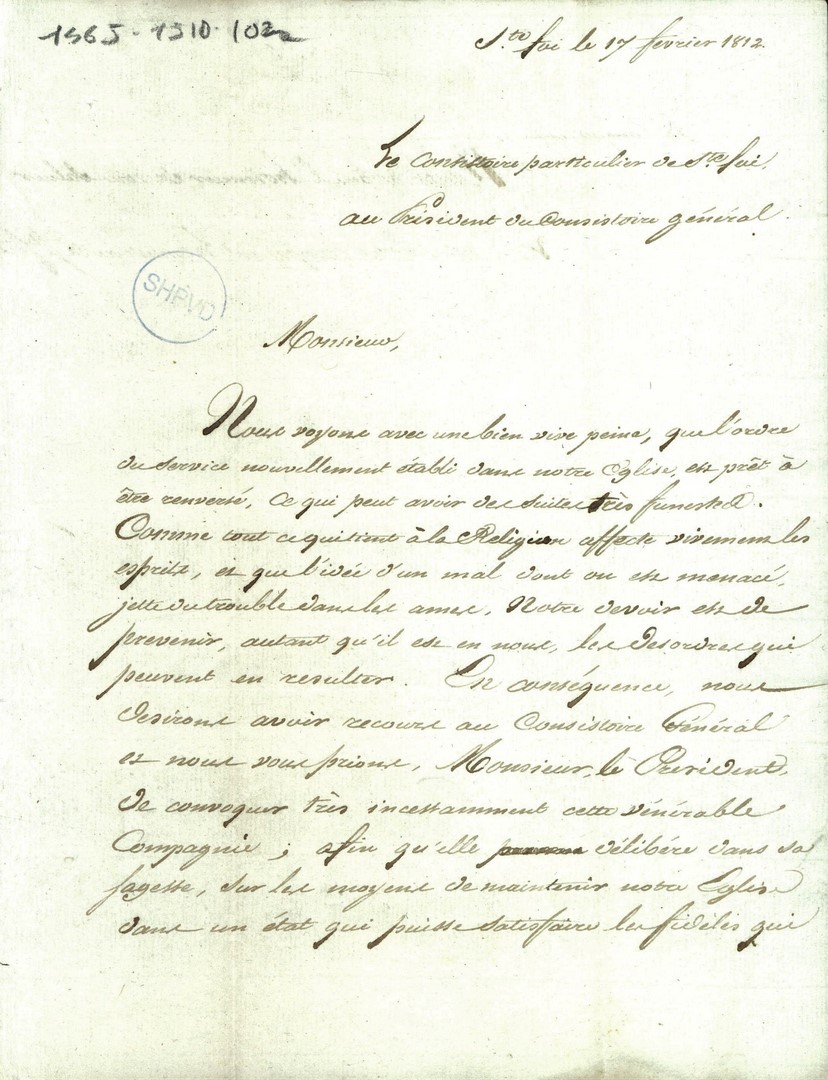 1565-1510-/02
S.te foi le 17 fevrier 1812.
Le Consistoire particulier de S.te foi.
au Président du Consistoire général.
SHPVD
Monsieur,
Nous voyons avec une bien vive peine, que l'ordre
du service nouvellement établi dans notre Eglise, est prêt à
être renversé, ce qui peut avoir des suites très funestes.
Comme tout ce qui tient à la Religion affecte vivement les
esprits, et que l'idée d'un mal dont on est menacé,
jette du trouble dans les ames, Notre devoir est de
prevenir, autant qu'il est en nous, les desordres qui
peuvent en resulter. En conséquence, nous
desirons avoir recours au Consistoire Général
et nous vous prions, Monsieur, le President,
de convoquer très incessamment cette vénérable
Compagnie ; afin qu'elle délibère dans sa
sagesse, sur les moyens de maintenir notre Eglise
dans un état qui puisse satisfaire les fidèles qui